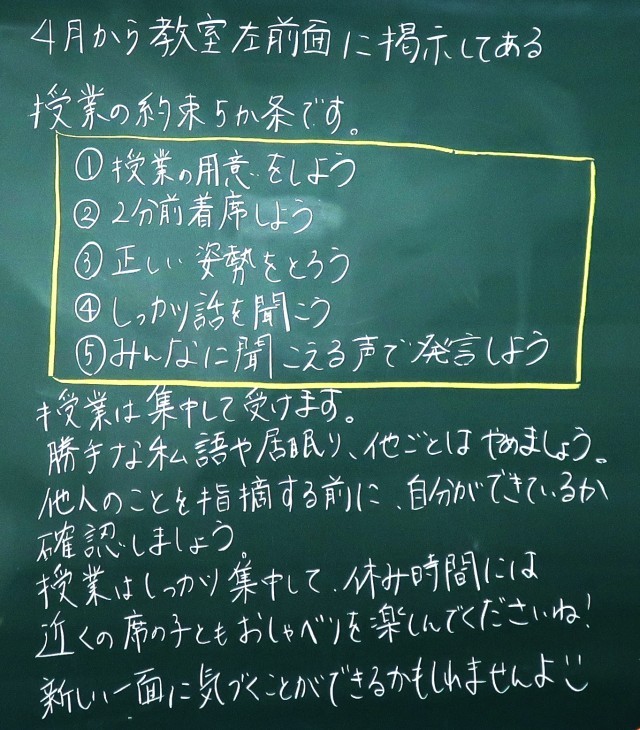 4月から教室左前面に掲示してある
授業の約束5か条です。
①授業の用意をしよう
②2分前着席しよう
③正しい姿勢をとろう
④しっかり話を聞こう
⑤みんなに聞こえる声で発言しよう
授業は集中して受けます。
勝手な私語や居眠り、他ごとはやめましょう。
他人のことを指摘する前に、自分ができているか
確認しましょう。
授業はしっかり集中して、休み時間には
近くの席の子ともおしゃべりを楽しんでくださいね!
新しい一面に気づくことができるかもしれませんよ